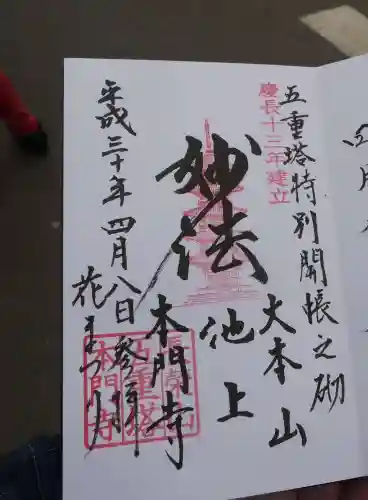 慶長十三年建立
五重塔特別開帳之砌
妙法
大本山
池上
本門寺
平成三十年四月八日参拝
花まつり
長栄山
五重塔
本門寺